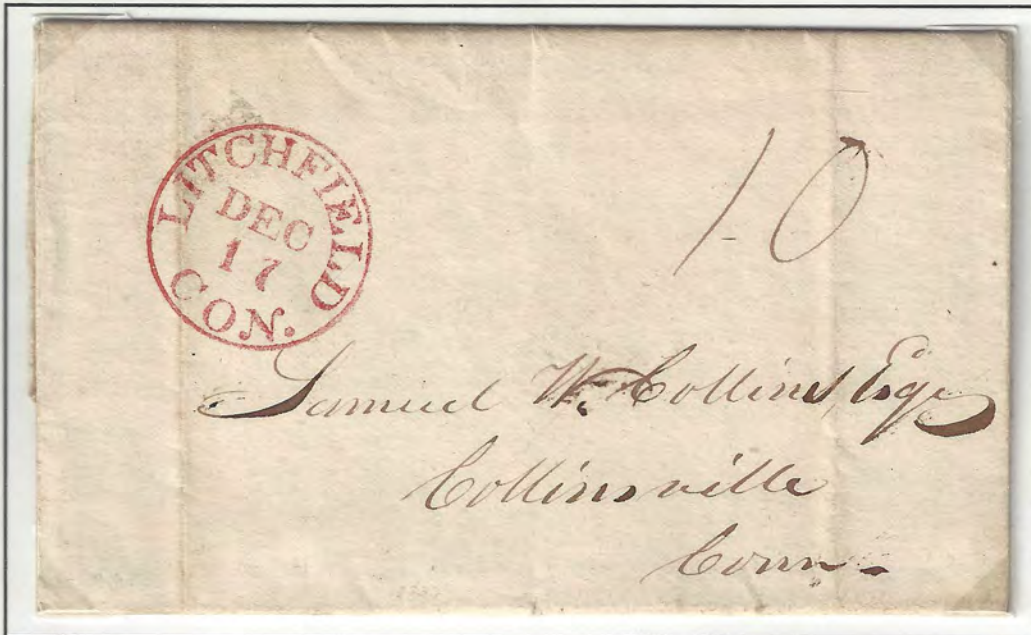 LITCHFIELD
DEC
17
CON.
10
Samuel W. Collins, Esqr
Collinsville
Conn